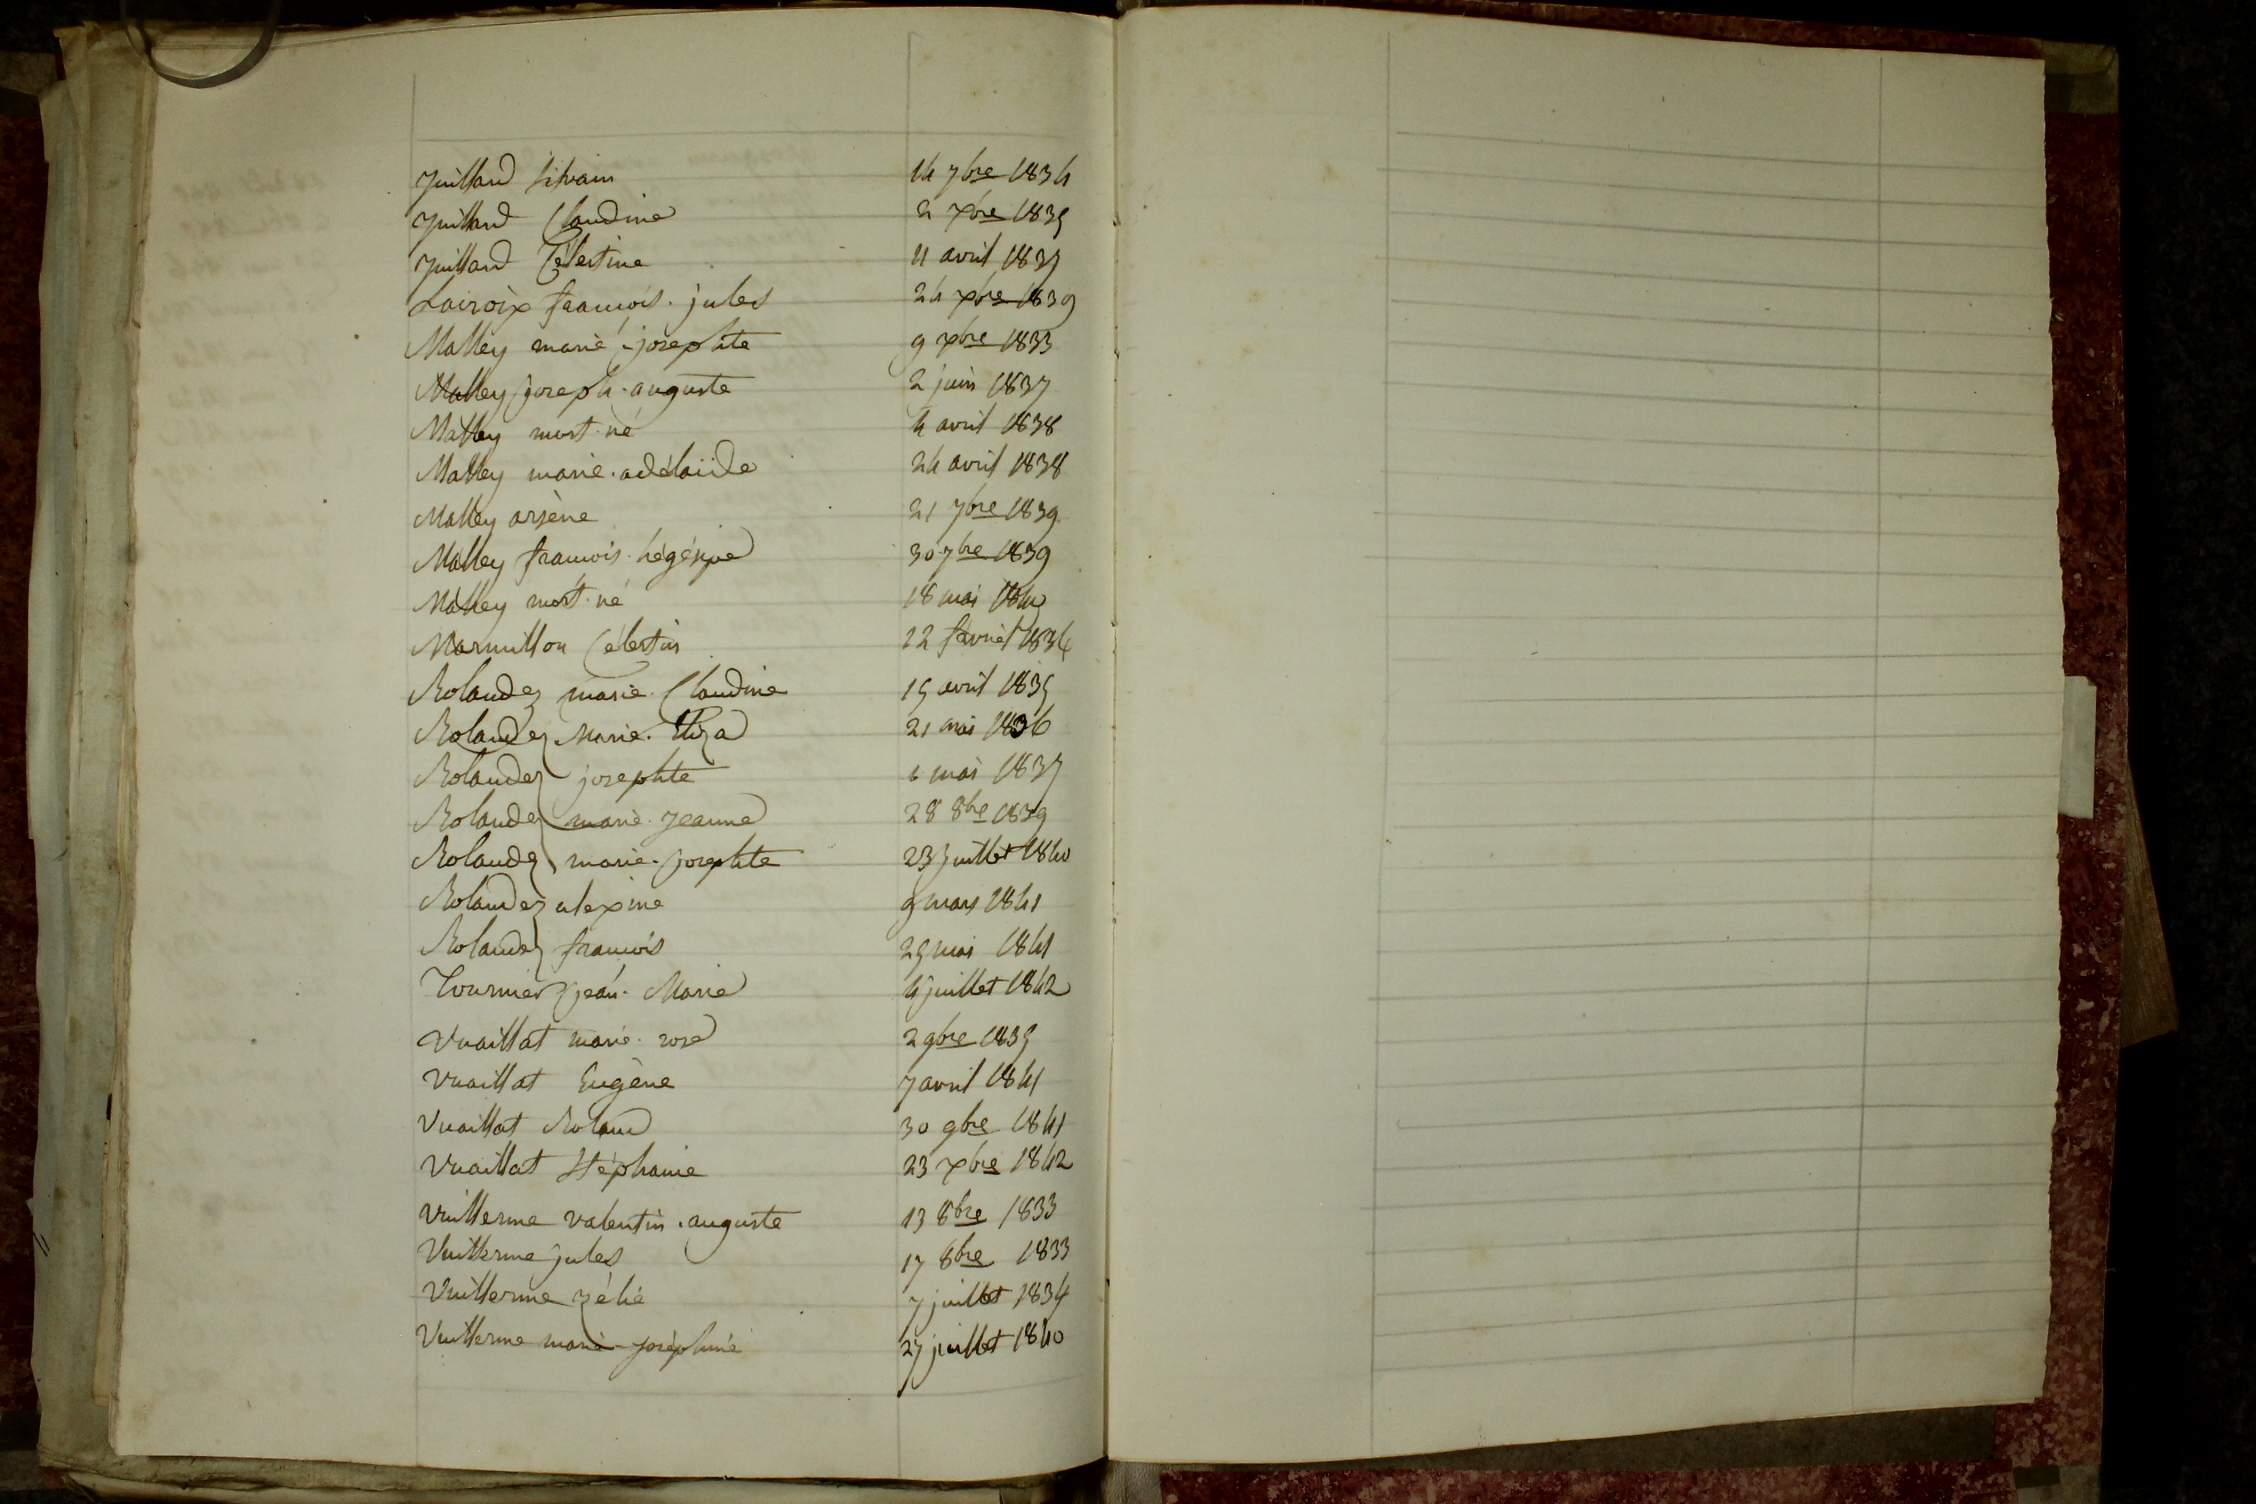 Juillard Silvain 14 7bre 1834
Juillard Claudine 2 xbre 1835
Juillard Célestine 11 avril 1837
Lacroix francois. jules 24 xbre 1839
Mathey marie-josephte 9 xbre 1833
Mathey joseph. auguste 2 juin 1837
Mathey mort. né 4 avril 1838
Mathey marie. adélaïde 24 avril 1838
Mathey arsène 21 7bre 1839
Mathey francois. hégésipe 30 7bre 1839
Mathey mort. né 18 mai
Marmillon Célestin 12 février 1834
Rolandez marie. Claudine 15 avril 1835
Rolandez Marie. Eliza 21 mai 1836
Rolandez josephte mai 1837
Rolandez marie. jeanne 28 8bre 1839
Rolandez marie. josephte 23 juillet 1840
Rolandez alexine 9 mars 1841
Rolandez francois 25 mai 1841
Tournier jean. Marie 4 juillet 1842
Vuaillat marie. rose 2 9bre 1835
Vuaillat Eugène 7 avril 1841
Vuaillat Roland 30 9bre 1841
Vuaillat Stéphanie 23 xbre 1842
Vuillerme valentin. auguste 13 8bre 1833
Vuillerme jules 17 8bre 1833
Vuillerme zélie 7 juillet 1834
Vuillerme marie-joséphine 27 juillet 1840